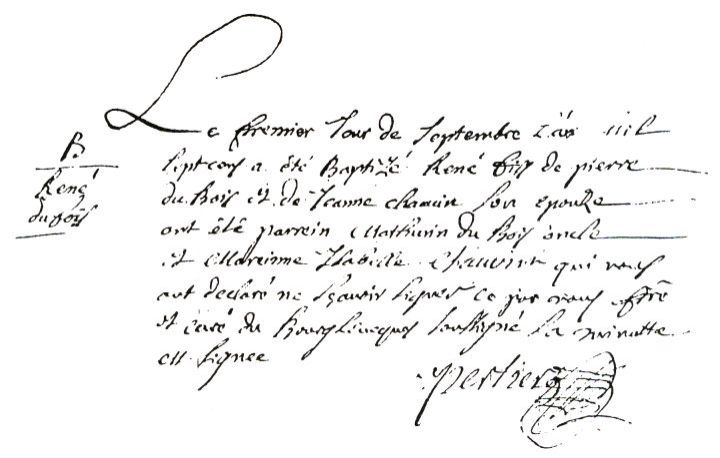 B
René
duBois
Le premier Jour de Septembre L'an mil
sept cens a été Baptizé René fils de pierre
du Bois et de Jeanne chauvin son epouze
ont été parrein Mathurin du Bois oncle
et Mareinne Izabelle Chauvin qui nous
ont declaré ne sçavoir signer ce par nous
et curé du Bourglevesque soussigné La minutte
est signee